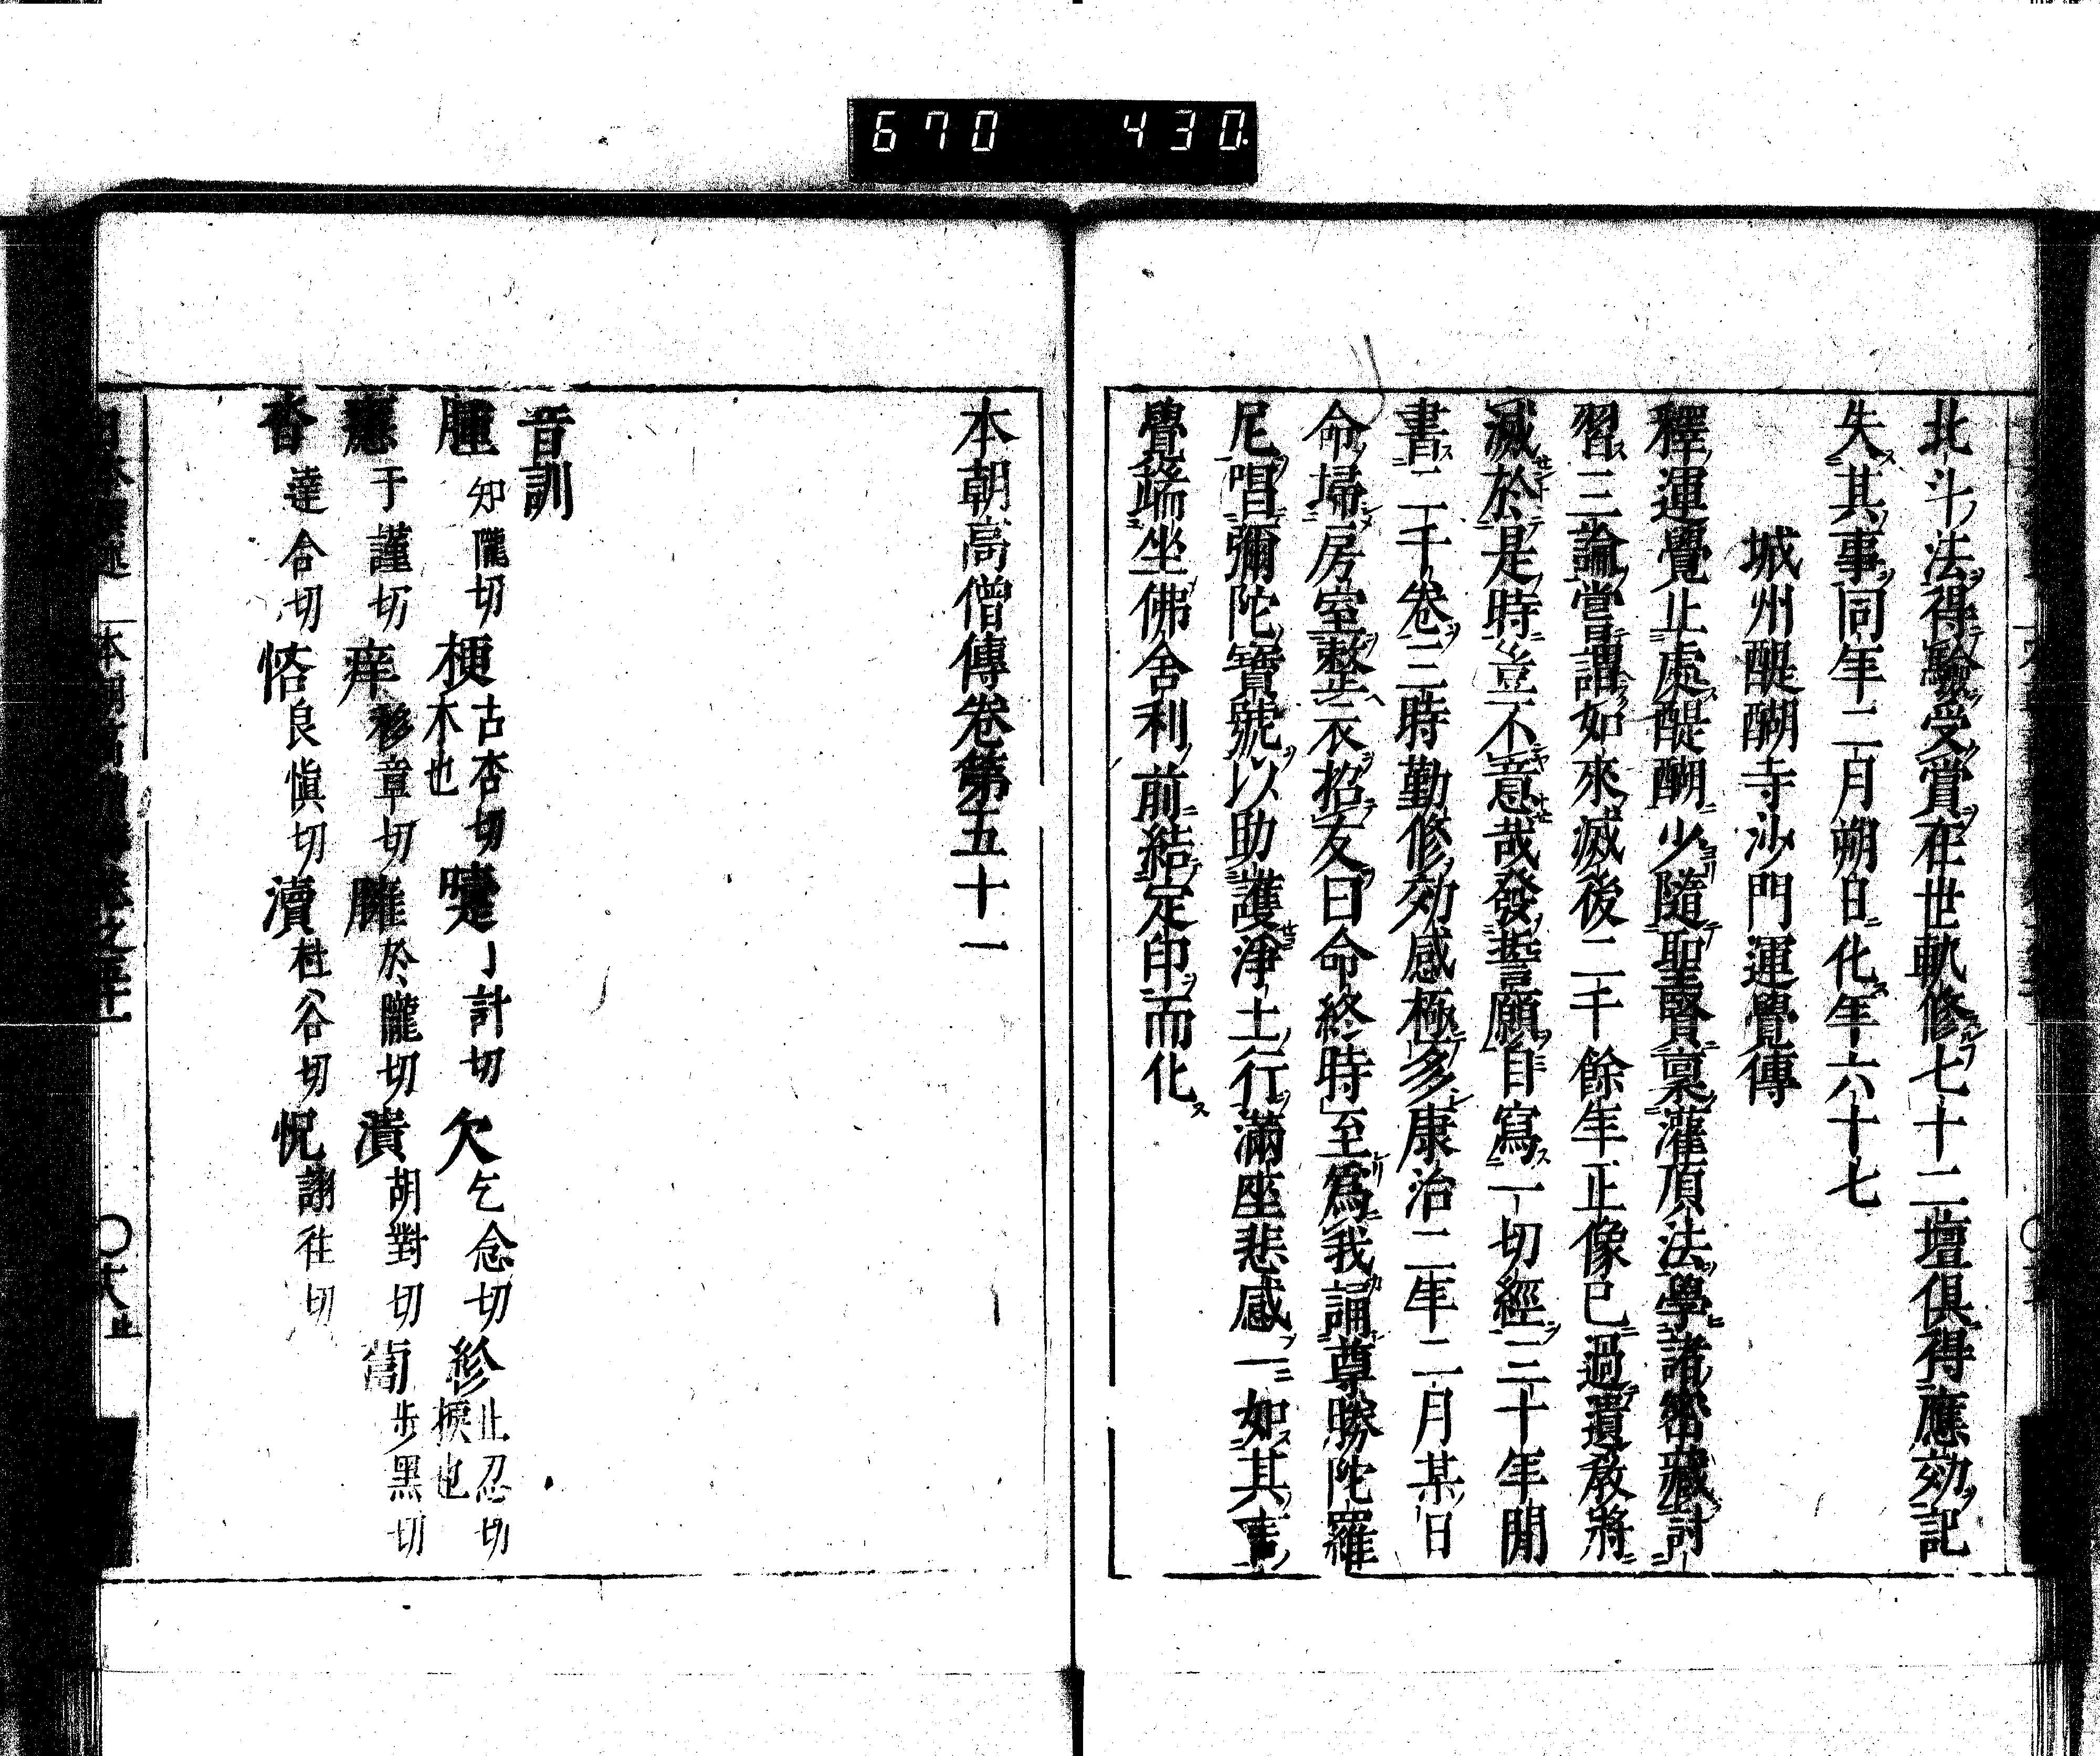 670 430
北斗法得驗受賞在世軌修七十二壇俱得應効記
失其事同年二月朔日化年六十七
城州醍醐寺沙門運覺傳
釋運覺止處醍醐少隨聖賢稟灌頂法學諸密藏討
習三論嘗謂如來滅後二千餘年正像已過遺教將
滅於是時豈不意哉發誓願自寫一切經三十年間
書二千卷三時勤修効感極多康治二年二月某日
命掃房室整衣招友曰命終時至爲我誦尊勝陀羅
尼唱彌陀寶號以助護淨土行滿座悲感一如其事
覺端坐佛舍利前結定印而化
本朝高僧傳卷第五十一
音訓
腫 知隴切 梗 古杏切木也 嚏 丁計切 欠 乞念切 紾 止忍切捩也
癮 于謹切 痒 移章切 臃 於隴切 潰 胡對切 蔔 步黑切
沓 達合切 悋 良愼切 瀆 杜谷切 怳 詡往切